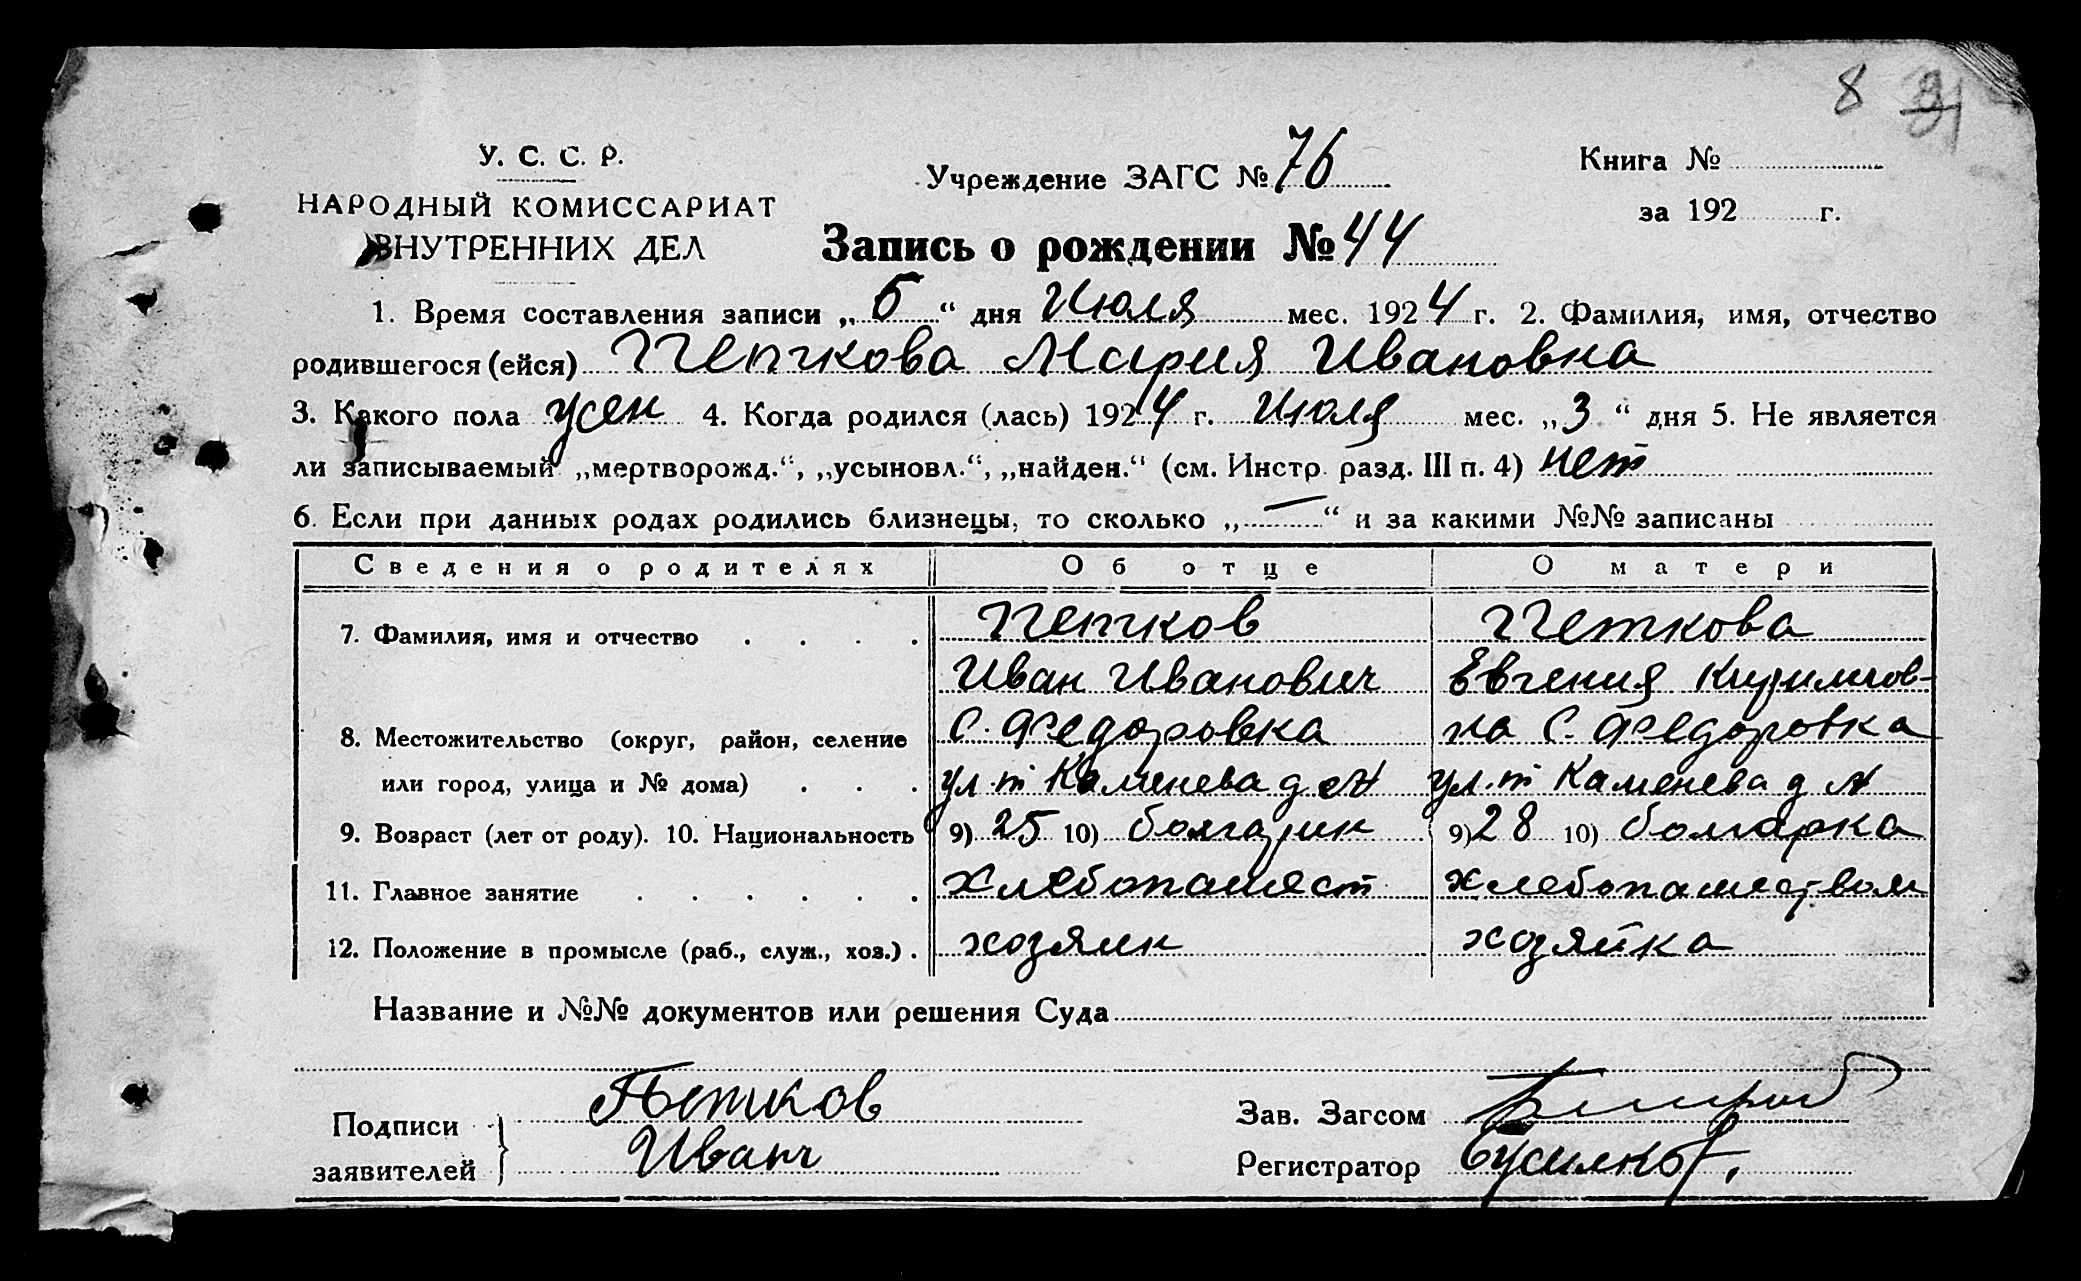 8
У. С. С. Р.
НАРОДНЫЙ КОМИССАРИАТ
ВНУТРЕННИХ ДЕЛ
Учреждение ЗАГС № 76
Книга №
за 192 г.
Запись о рождении № 44
1. Время составления записи „ 5 “ дня Июля мес. 1924 г. 2. Фамилия, имя, отчество
родившегося (ейся) Петкова Мария Ивановна
3. Какого пола жен 4. Когда родился (лась) 1924 г. Июля мес. „ 3 “ дня 5. Не является
ли записываемый „мертворожд.“, „усыновл.“, „найден.“ (см. Инстр. разд. III п. 4) нет
6. Если при данных родах родились близнецы, то сколько „ — “ и за какими №№ записаны
Сведения о родителях Об отце О матери
7. Фамилия, имя и отчество . . . . Петков Петкова
Иван Иванович Евгения
8. Местожительство (округ, район, селение С. Федоровка на С. Федоровка
или город, улица и № дома) . . . ул. т Каменева д. N ул. т Каменева д N
9. Возраст (лет от роду). 10. Национальность 9) 25 10) болгарин 9) 28 10) болгарка
11. Главное занятие . . . . . . Хлебопашест хлебопашеством
12. Положение в промысле (раб., служ., хоз.) . хозяин хозяйка
Название и №№ документов или решения Суда
Подписи
заявителей
Петков
Иван
Зав. Загсом
Регистратор